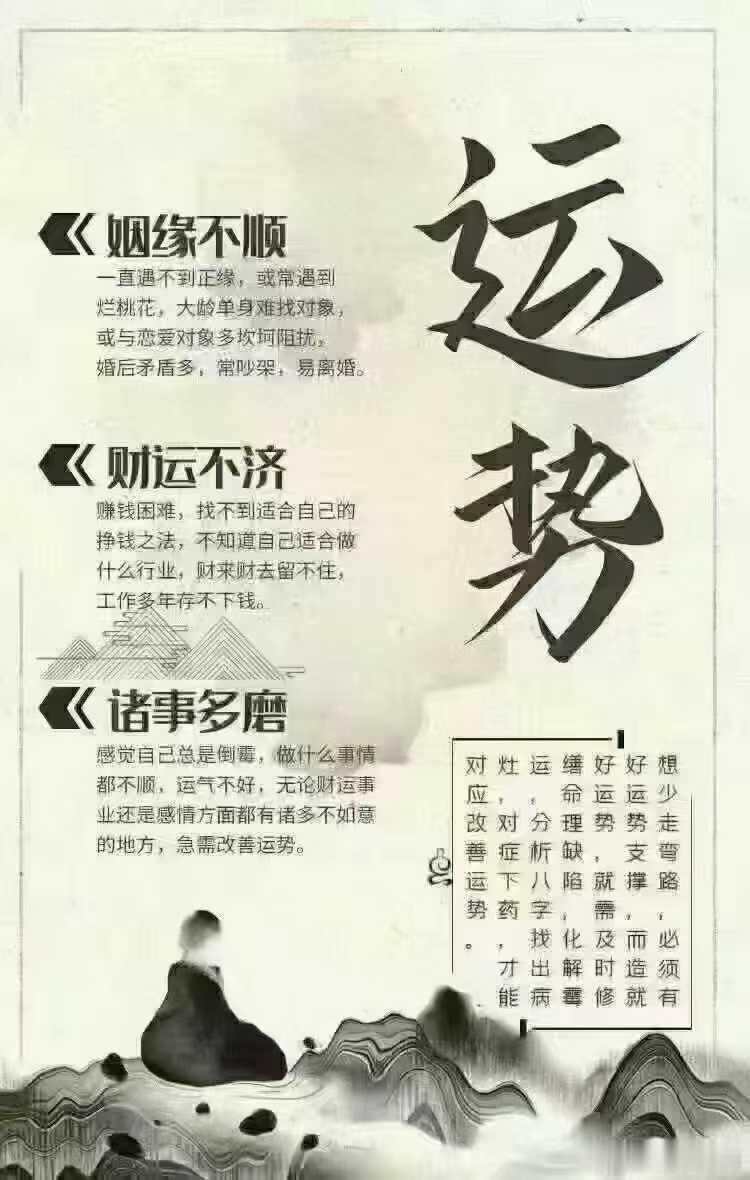 运势
姻缘不顺
一直遇不到正缘，或常遇到
烂桃花，大龄单身难找对象，
或与恋爱对象多坎坷阻扰，
婚后矛盾多，常吵架，易离婚。
财运不济
赚钱困难，找不到适合自己的
挣钱之法，不知道自己适合做
什么行业，财来财去留不住，
工作多年存不下钱。
诸事多磨
感觉自己总是倒霉，做什么事情
都不顺，运气不好，无论财运事
业还是感情方面都有诸多不如意
的地方，急需改善运势。
想少走弯路，必须有
好运势支撑，而造就
好运势，就需及时修
缮命理缺陷，化解霉
运，分析八字，找出病
灶，对症下药，才能
对应改善运势。